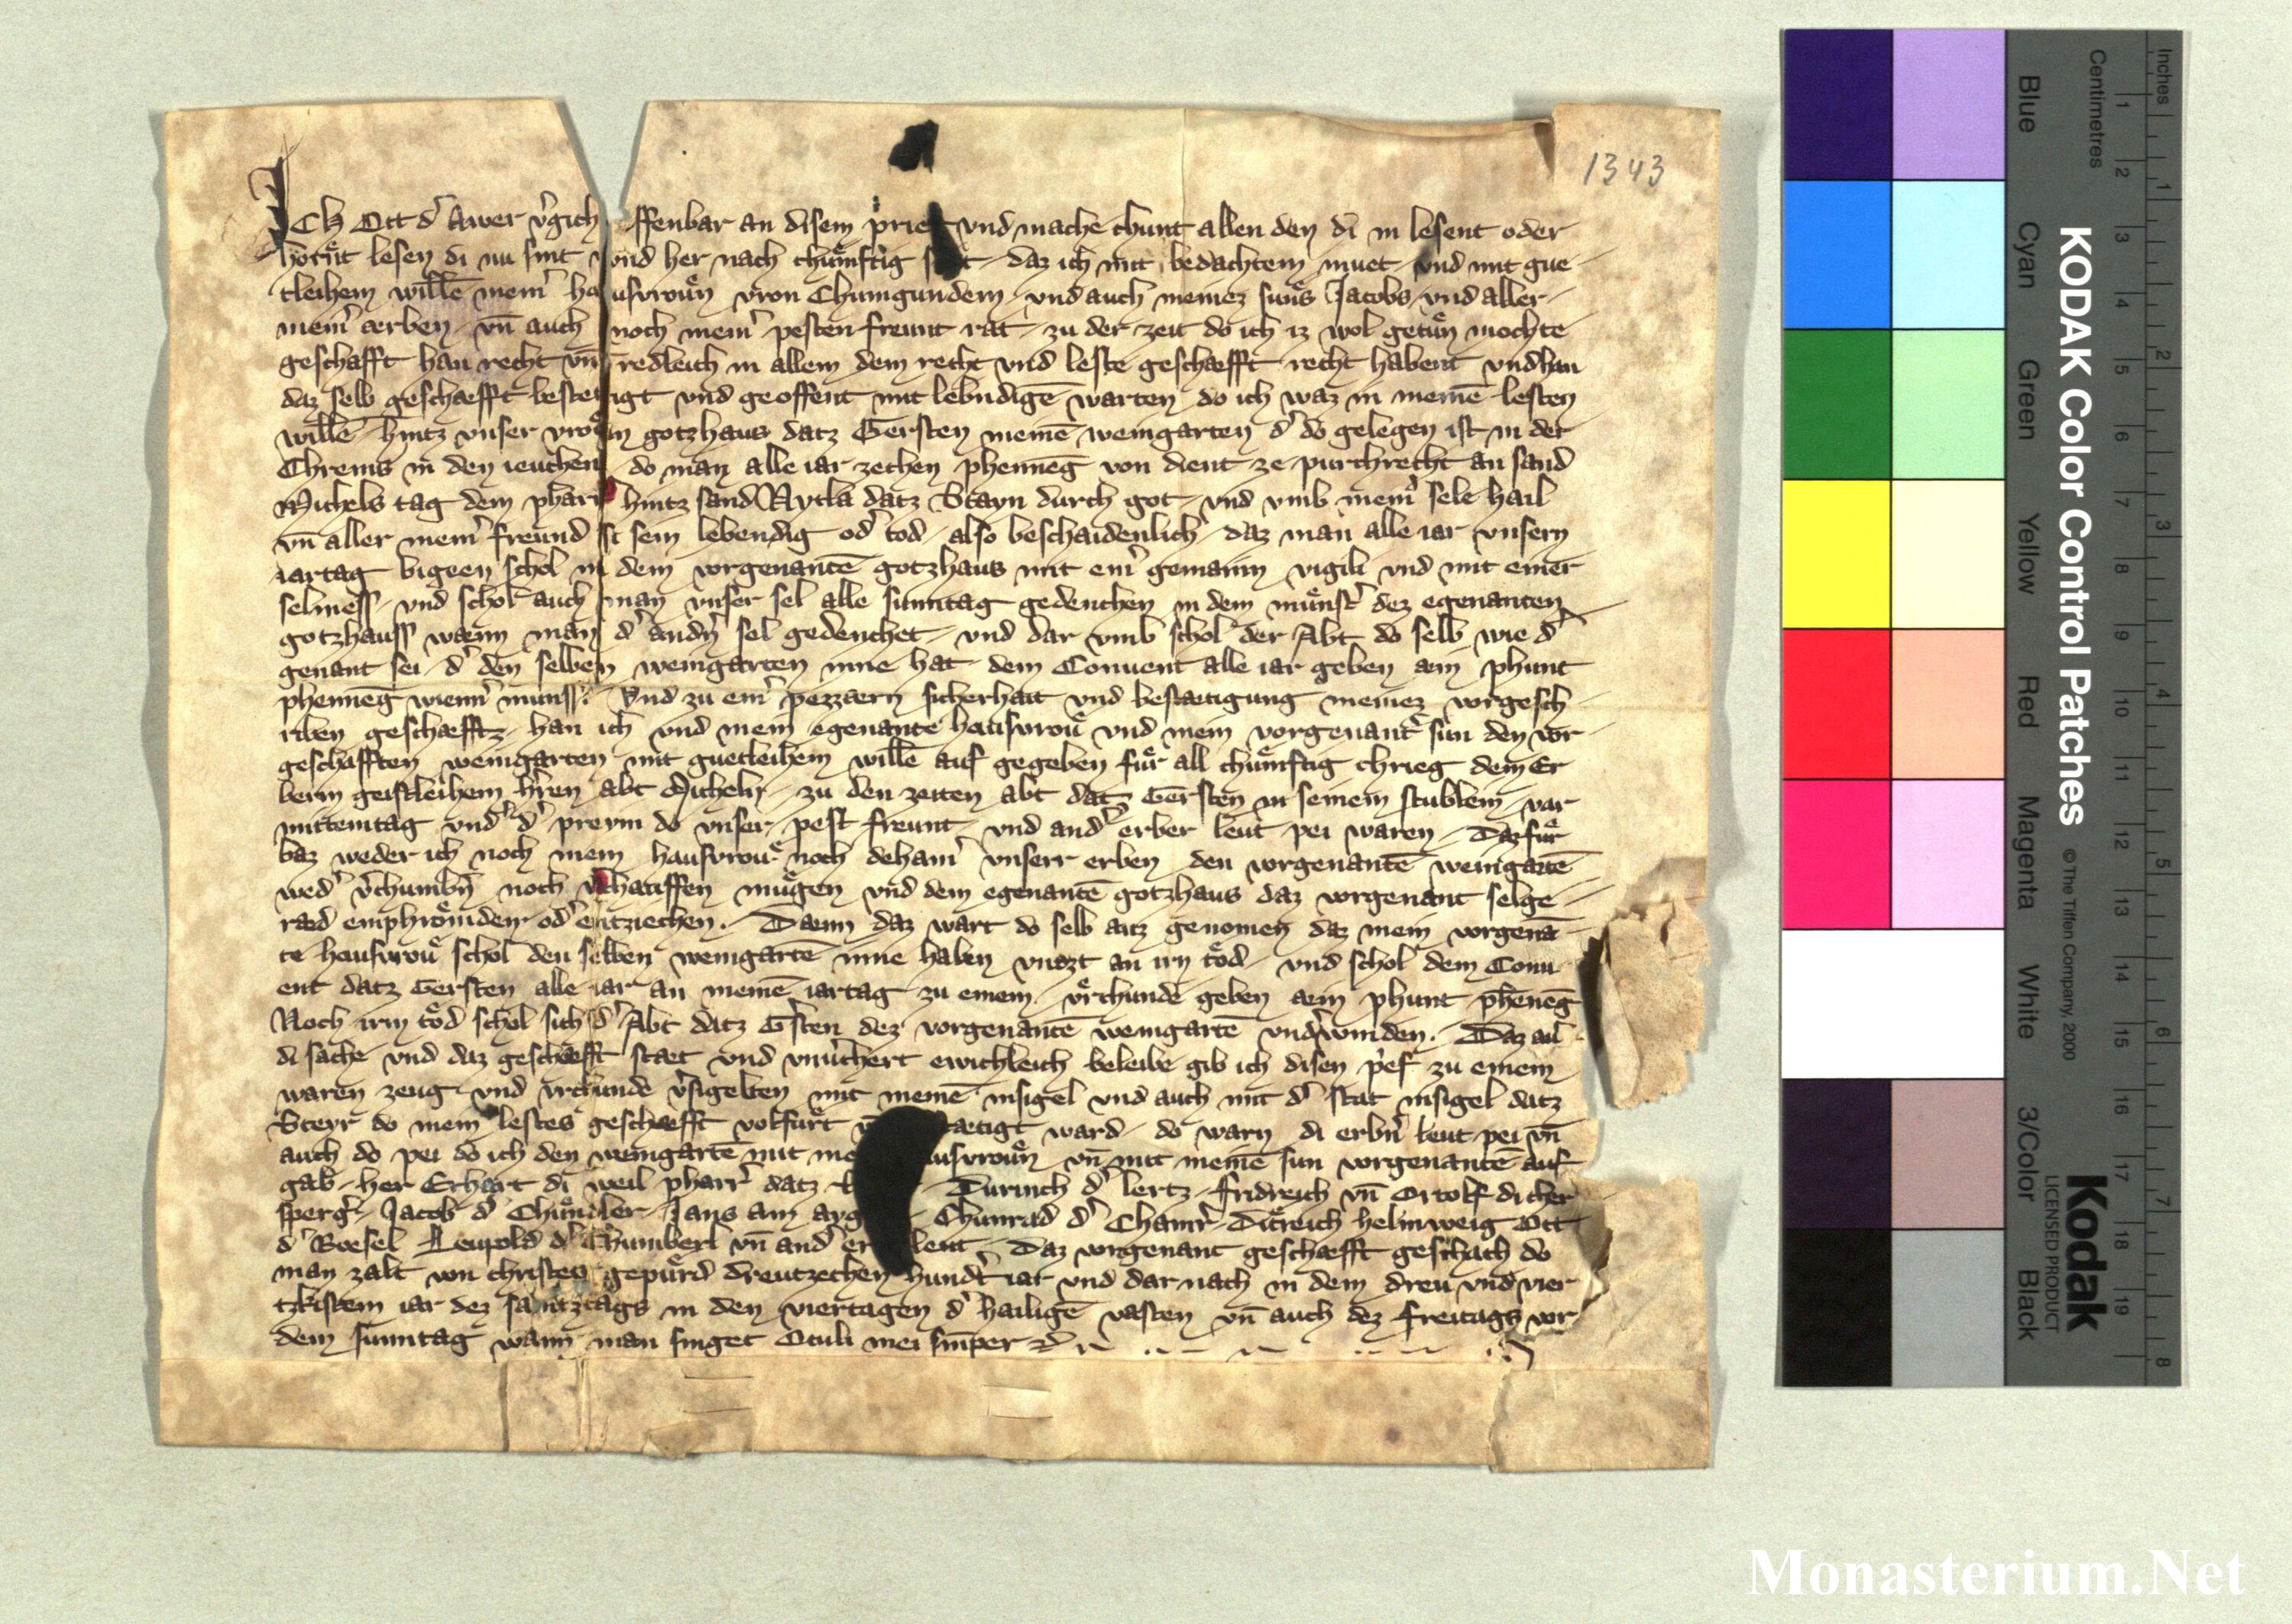 1343
ICh Ott d' Awer v'gich offenbar an disem prief vnd mache chunt allen den di in lesent oder
hörnt lesen di nu sint vnd her nach chumftig sint daz ich mit bedachtem muet vnd mit gue
tleihem wille meinr hausvroun vron Chunigunden vnd auch meinez suns Jacobs vnd aller
meinr aerben vn auch noch meinr pesten freunt rat zu der zeit do ich iz wol getun mochte
geschafft han recht vn redleich in allem dem recht vnd leste geschaefft recht habent vnd han
daz selb geschaefft bestetigt vnd geoffent mit lebndige warten do ich waz in meine lesten
wille hintz vnser vroun gotzhaus datz Gersten meine weingarten d' do gelegen ist in der
Chrems in den ieuchen do man alle iar zechen phenneg von dient ze purchrecht an sand
Michels tag dem pharr' hintz sand Nycla datz Stayn durch got vnd vmb meinr sele hail
vn aller meinr freund si sein lebendig od' tod also beschaidenlich daz man alle iar vnsern
iartag bigeen schol in dem vorgenante gotzhaus mit einr gemainn vigili vnd mit einer
selmess vnd schol auch man vnser sel alle sunntag gedenchen in dem munst' dez egenanten
gotzhauss wann man d' andn sel gedenchet vnd dar vmb schol der Abt do selb wie d'
genant sei d' den selben weingarten inne hat dem Conuent alle iar geben ain phunt
phenneg wienn' munss. Vnd zu einr pezzaern sicherhait vnd bestaetigung meinez vorgesch
riben geschaefftz han ich vnd mein egenante hausvrou vnd mein vorgenant' sun den vor
geschafften weingarten mit guetleihem wille auf gegeben fur all chumftig chrieg dem Er
bern geistleihem h'ren abt Micheln zu den zeiten abt datz Gersten in seinem stublein var
mittemtag vnd' d' preym do vnser pest freunt vnd and' erber leut pei waren Daz fur
baz weder ich noch mein hausvrou noch dehain' vnserr erben den vorgenante weingarte
wed' v'chumbn noch v'chauffen mugen vnd dem egenante gotzhaus daz vorgenant selge
raed emphromden od' entziechen. Dann daz wart do selb auz genomen daz mein vorgena
te hausvrou schol den selben weingarte inne haben vnezt an irn tod vnd schol dem Conu
ent datz Gersten alle iar an meine iartag zu einem vrchunde geben ain phunt pheneg
Noch irm tod schol sich d' Abt datz G'sten dez vorgenante weingarte vnd'winden. Daz au'
di sache vnd daz geschaefft staet vnd vnu'chert ewichleich beleibe gib ich disen p'ef zu einem
waren zeug vnd vrchunde v'sigelten mit meine insigel vnd auch mit d' stat insigel datz
Steyr do mein lestes geschaefft volfurt taetigt ward do warn di erbn leut pei vn
auch do pei do ich den weingarte mit me usvroun vn mit meine sun vorgenante auf
gab her Erhart di weil pharr' datz Durinch d' lertz fridreich vn Ortolf di cher
sperg' Jacob d' Chundler Jans am Chunrad d' Chamr' Ditreich helmweig Ott
d' Roesel Leupold d' Chumberl vn and' er leut Daz vorgenant geschaefft geschach do
man zalt von christes gepurd dreutzechen hund't iar vnd dar nach in dem dreu vnd vier
tzkistem iar dez santztags in den viertagen d' hailige vasten vn auch dez freitags vor
dem sunntag wann man singet Oculi mei semper
KODAK Color Control Patches
© The Tiffen Company, 2000
Kodak
LICENSED PRODUCT
Inches
Centimetres
Blue
Cyan
Green
Yellow
Red
Magenta
White
3/Color
Black
1 2 3 4 5 6 7 8 9 10 11 12 13 14 15 16 17 18 19
1 2 3 4 5 6 7 8
Monasterium.Net